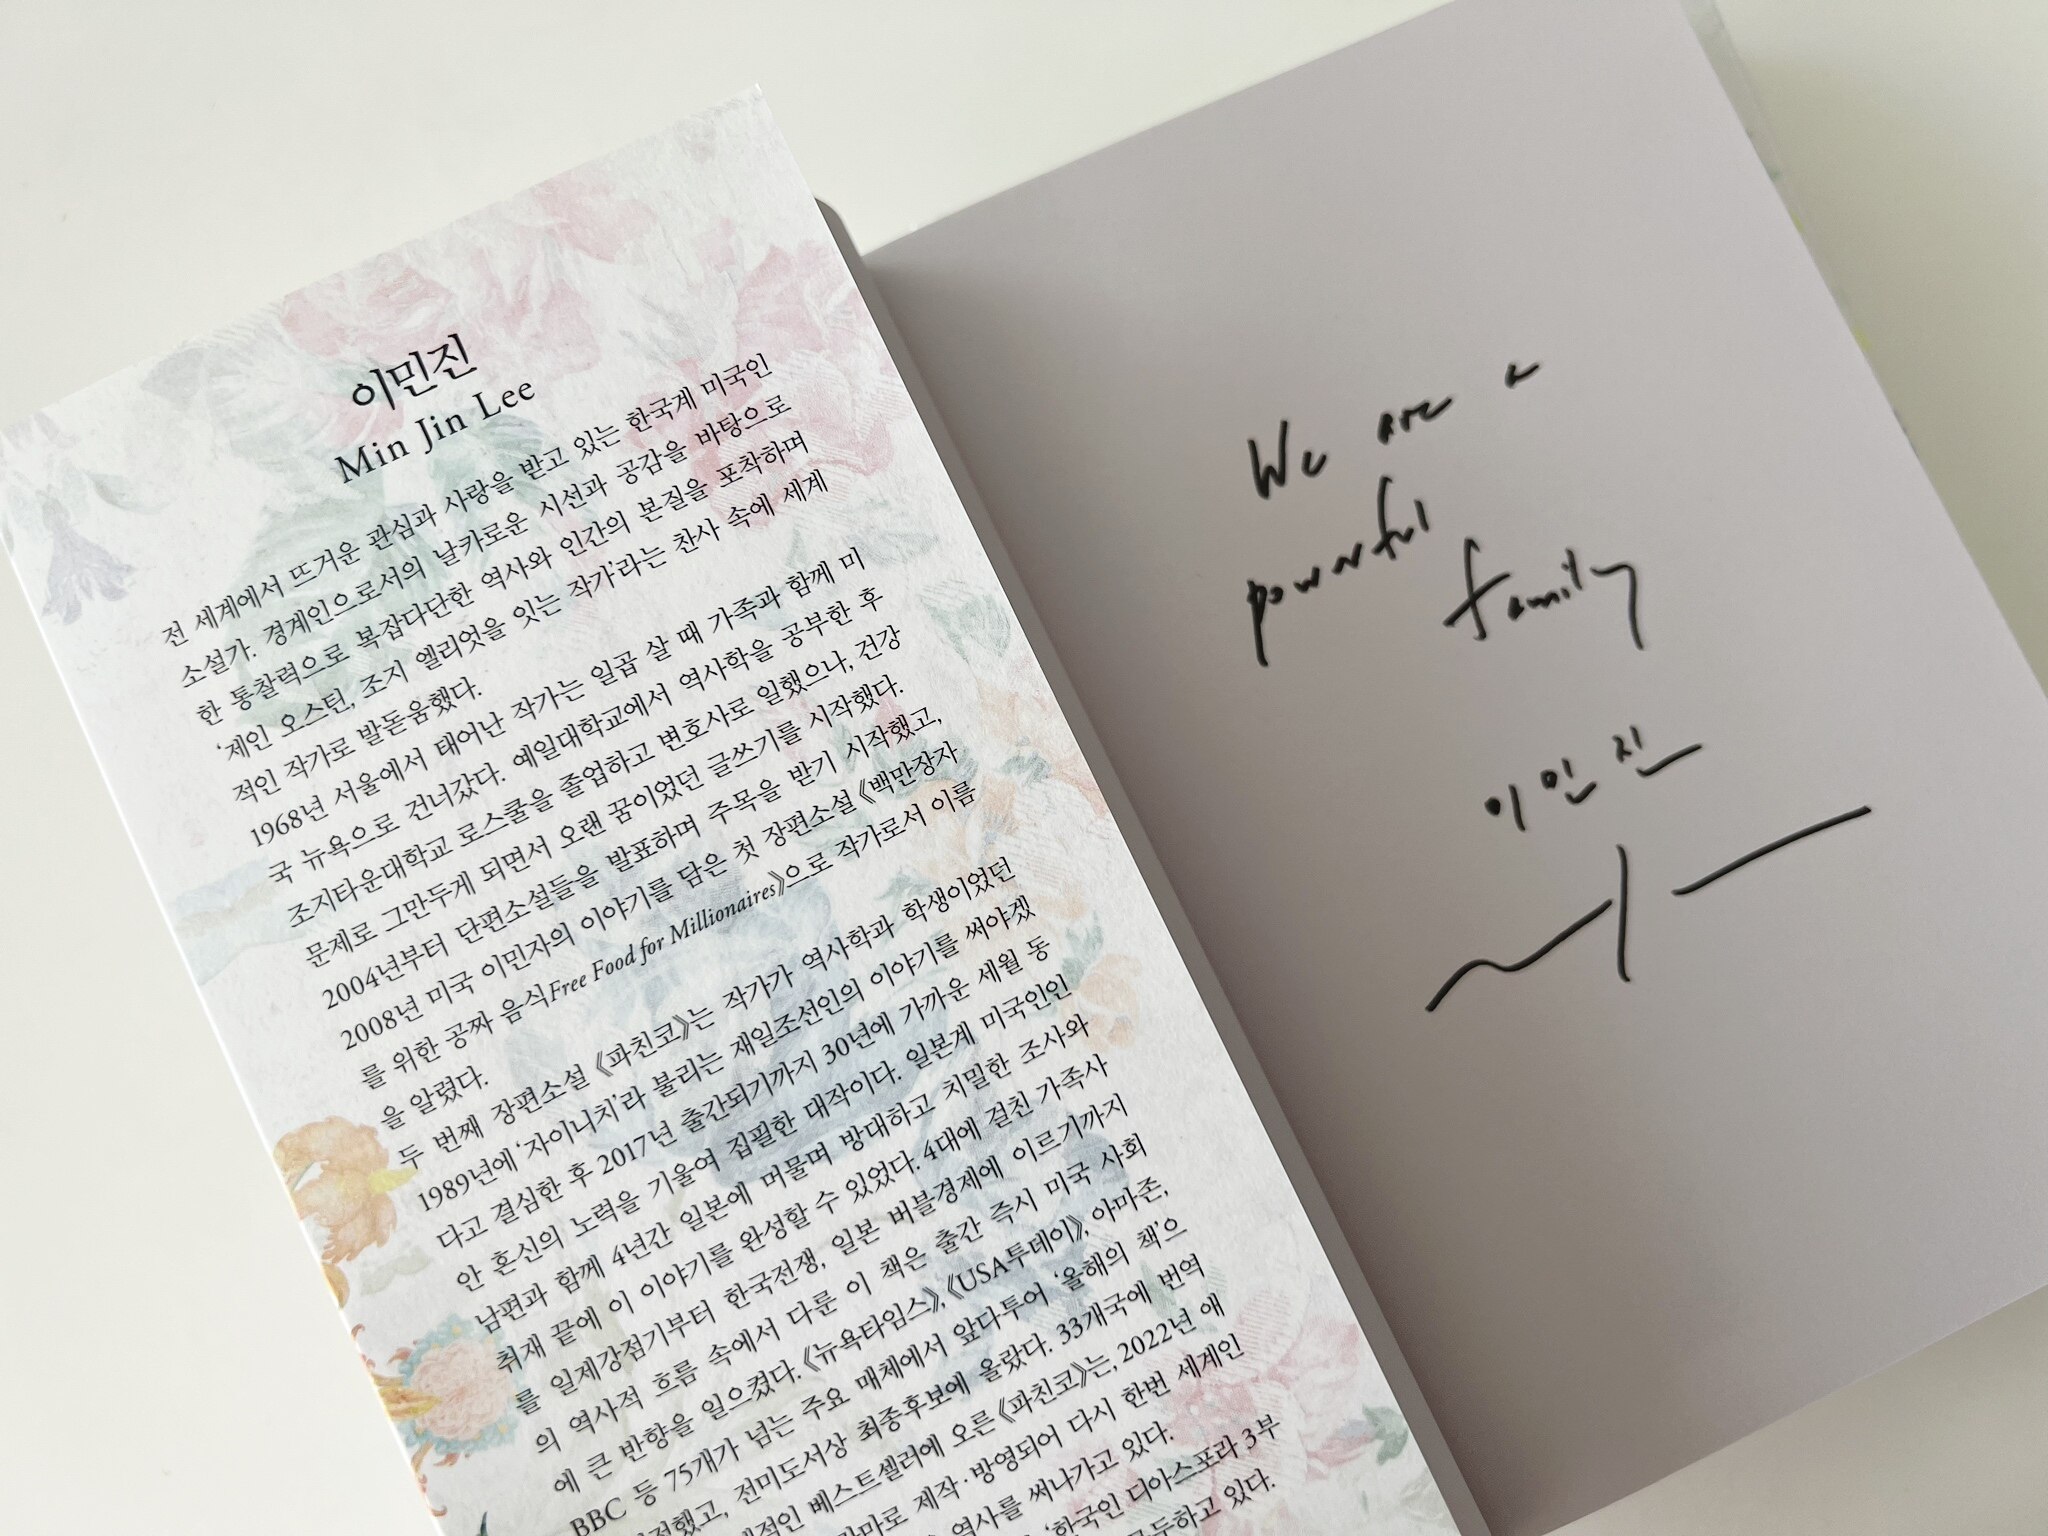 이민진
Min Jin Lee
전 세계에서 뜨거운 관심과 사랑을 받고 있는 한국계 미국인
소설가. 경계인으로서의 날카로운 시선과 공감을 바탕으로
한 통찰력으로 복잡다단한 역사와 인간의 본질을 포착하며
‘제인 오스틴, 조지 엘리엇을 잇는 작가’라는 찬사 속에 세계
적인 작가로 발돋움했다.
1968년 서울에서 태어난 작가는 일곱 살 때 가족과 함께 미
국 뉴욕으로 건너갔다. 예일대학교에서 역사학을 공부한 후
조지타운대학교 로스쿨을 졸업하고 변호사로 일했으나, 건강
문제로 그만두게 되면서 오랜 꿈이었던 글쓰기를 시작했다.
2004년부터 단편소설들을 발표하며 주목을 받기 시작했고,
2008년 미국 이민자의 이야기를 담은 첫 장편소설 《백만장자
를 위한 공짜 음식Free Food for Millionaires》으로 작가로서 이름
을 알렸다.
두 번째 장편소설 《파친코》는 작가가 역사학과 학생이었던
1989년에 ‘자이니치’라 불리는 재일조선인의 이야기를 써야겠
다고 결심한 후 2017년 출간되기까지 30년에 가까운 세월 동
안 혼신의 노력을 기울여 집필한 대작이다. 일본계 미국인인
남편과 함께 4년간 일본에 머물며 방대하고 치밀한 조사와
취재 끝에 이 이야기를 완성할 수 있었다. 4대에 걸친 가족사
를 일제강점기부터 한국전쟁, 일본 버블경제에 이르기까지
의 역사적 흐름 속에서 다룬 이 책은 출간 즉시 미국 사회
에 큰 반향을 일으켰다. 《뉴욕타임스》, 《USA투데이》, 아마존,
BBC 등 75개가 넘는 주요 매체에서 앞다투어 ‘올해의 책’으
했고, 전미도서상 최종후보에 올랐다. 33개국에 번역
베스트셀러에 오른 《파친코》는, 2022년 애
제작·방영되어 다시 한번 세계인
역사를 써나가고 있다.
‘한국인 디아스포라 3부
하고 있다.
We are a
powerful
family
이민진